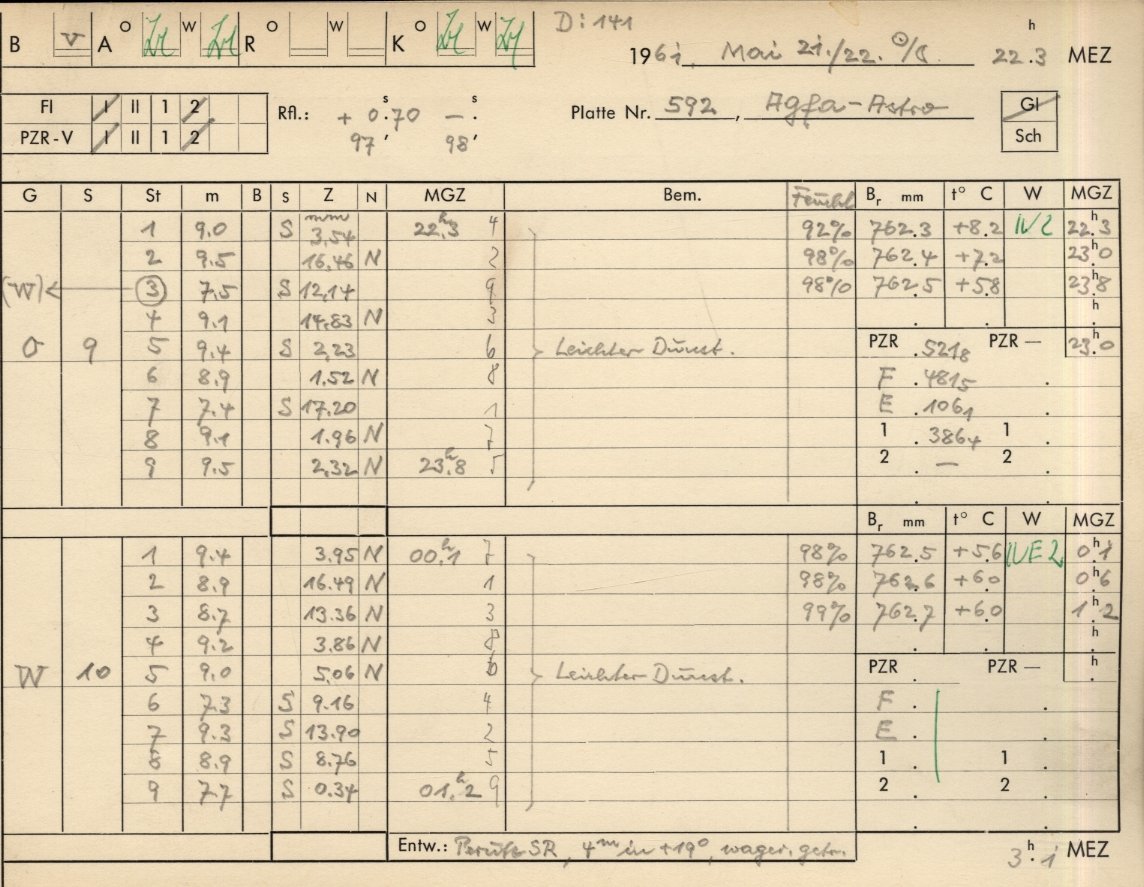 D: 141
B v A O W R O W K O W 1961, Mai 21./22. 22.3 h MEZ
FI I II 1 2
PZR-V I II 1 2
Rfl.: + 0.70 s — . s
97′ 98′
Platte Nr. 592, Agfa-Astro
Gl
Sch
G S St m B S Z N MGZ Bem. Feucht. Br mm t° C W MGZ
1 9.0 S mm 3,54 22h.3 4 92% 762.3 +8.2 22h.3
2 9.5 16,46 N 2 98% 762.4 +7.2 23h.0
(W) 3 7.5 S 12,14 9 98% 762.5 +5.8 23h.8
4 9.1 14,83 N 3 h
O 9 5 9.4 S 2,23 6 Leichter Dunst. PZR .5218 PZR — 23h.0
6 8.9 1,52 N 8 F .4815
7 7.4 S 17.20 1 E .1061
8 9.1 1.96 N 7 1 .3864 1
9 9.5 2,32 N 23h.8 5 2 . — 2
Br mm t° C W MGZ
1 9.4 3.95 N 00h.1 7 98% 762.5 +5.6 0h.1
2 8.9 16.49 N 1 98% 762.6 +6.0 0h.6
3 8.7 13.36 N 3 99% 762.7 +6.0 1h.2
4 9.2 3.86 N 8 h
W 10 5 9.0 5,06 N 6 Leichter Dunst. PZR . PZR — h
6 7.3 S 9.16 4 F .
7 9.3 S 13.90 2 E .
8 8.9 S 8.76 5 1 . 1
9 7.7 S 0.34 01h.2 9 2 . 2
Entw.: Perutz SR, 4m in +19°, wager. getr. 3h.1 MEZ